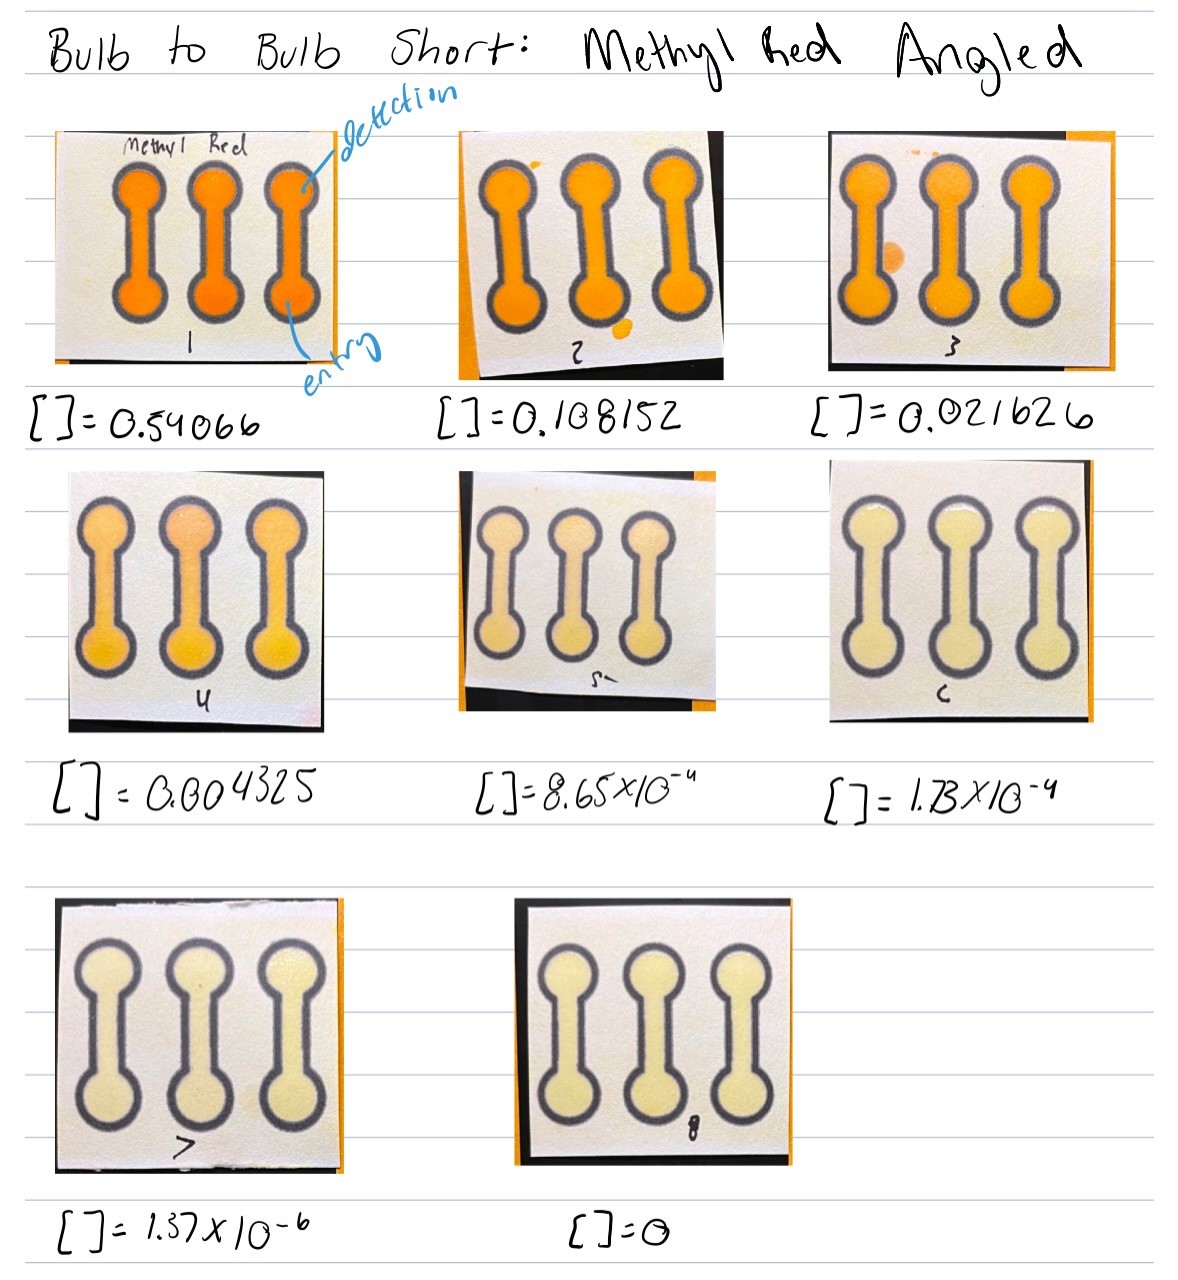 Bulb to Bulb Short: Methyl Red Angled
Methyl Red
1
entry
detection
2
3
[ ] = 0.54066
[ ] = 0.108152
[ ] = 0.021626
4
5
6
[ ] = 0.004325
[ ] = 8.65 x 10-4
[ ] = 1.73 x 10-4
7
8
[ ] = 1.37 x 10-6
[ ] = 0